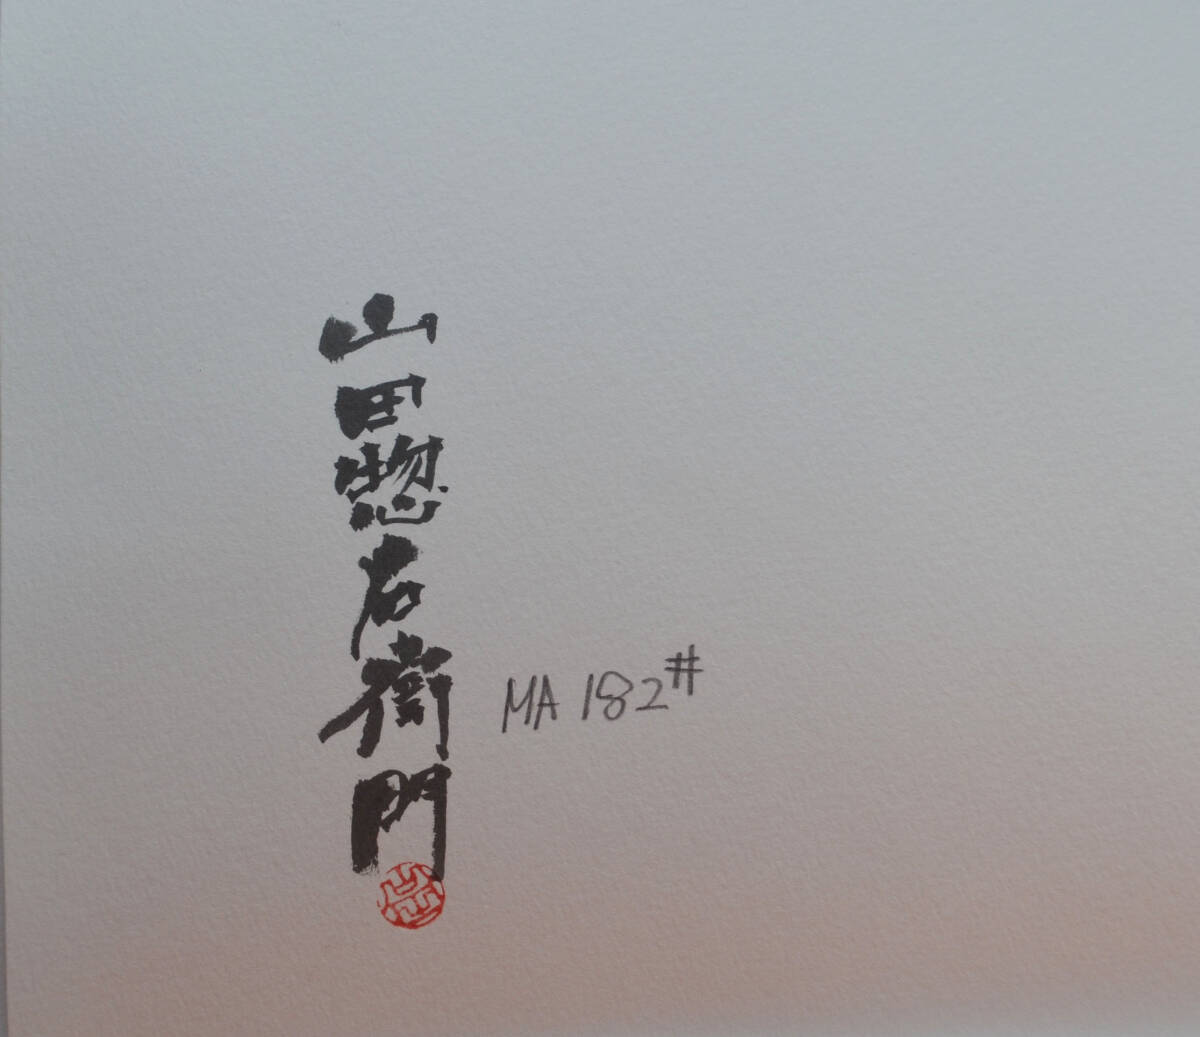 山田惣右衛門
MA 182#